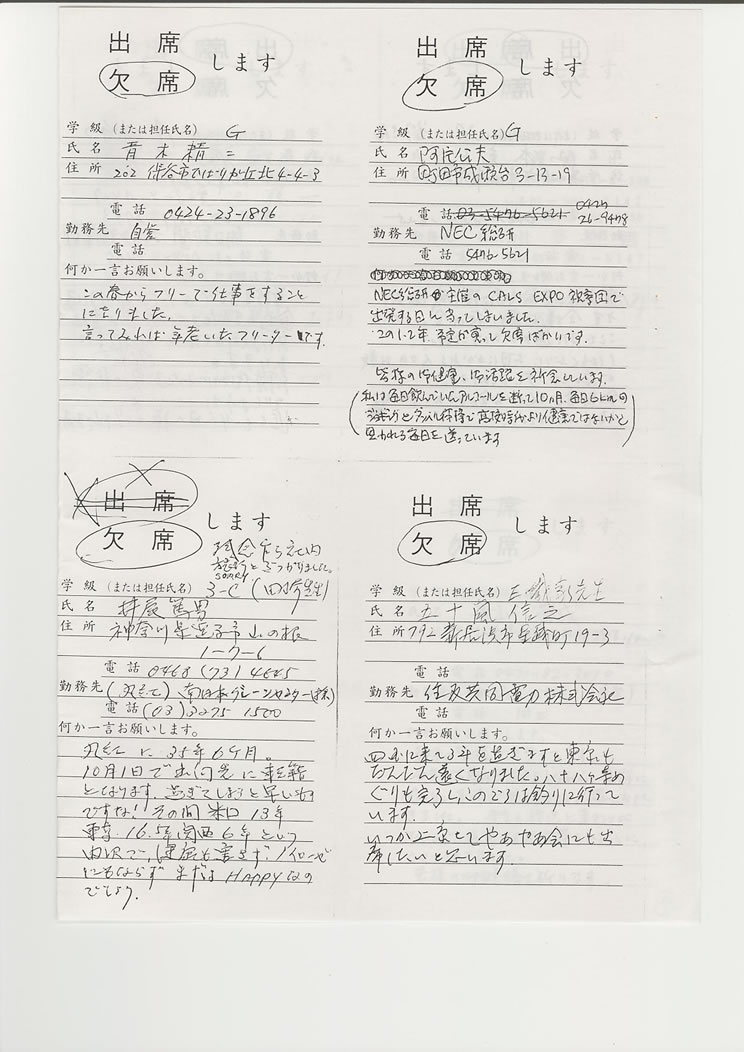 出 席
欠 席
します
学 級 (または担任氏名) G
氏 名 青木精二
住 所 202 保谷市ひばりが丘北4-4-3
電 話 0424-23-1896
勤務先 自営
電 話
何か一言お願いします。
この春からフリーで仕事をすること
になりました。
言ってみれば年老いたフリーターです。
出 席
欠 席
します
学 級 (または担任氏名) G
氏 名
住 所 町田市成瀬台3-13-19
電 話 03-5476-5621 0427 26-9478
勤務先 NEC総研
電 話 5476-5621
NEC総研が主催の CALS EXPO 視察団で
出発する日に当ってしまいました。
この1~2年 予定が重って欠席ばかりです。
皆様の御健康、御活躍を祈念しています。
(私は毎日飲んでいたアルコールを断って10ヵ月、毎日6kmの
ジョギングとダンベル体操で高校時代より健康ではないかと
思われる毎日を送っています)
出 席
欠 席
します
残念ながら社内
旅行とぶつかりました。
SORRY
学 級 (または担任氏名) 3-C
氏 名 篤男
住 所 神奈川県逗子市山の根
1-7-6
電 話 0468 (73) 4645
勤務先 (丸紅) 南日本グレーンセンター(株)
電 話 (03) 3275 1500
何か一言お願いします。
丸紅に35年6ヶ月。
10月1日で出向先に転籍
となります。過ぎてしまうと早いもの
ですな! その間 米国 13年
東京 16.5年 関西6年という
内訳で、健康も害さず、ノイローゼ
にもならず まずは HAPPYなの
でしょう。
出 席
欠 席
します
学 級 (または担任氏名) 先生
氏 名 五十嵐 信之
住 所 792 新居浜市星越町19-3
電 話
勤務先 住友共同電力株式会社
電 話
何か一言お願いします。
四国に来て3年を過ぎますと東京も
だんだん遠くなりました。八十八ヶ寺め
ぐりも完了し、このごろは釣りに行って
います。
いつか上京してやあやあ会にも出
席したいと思います。